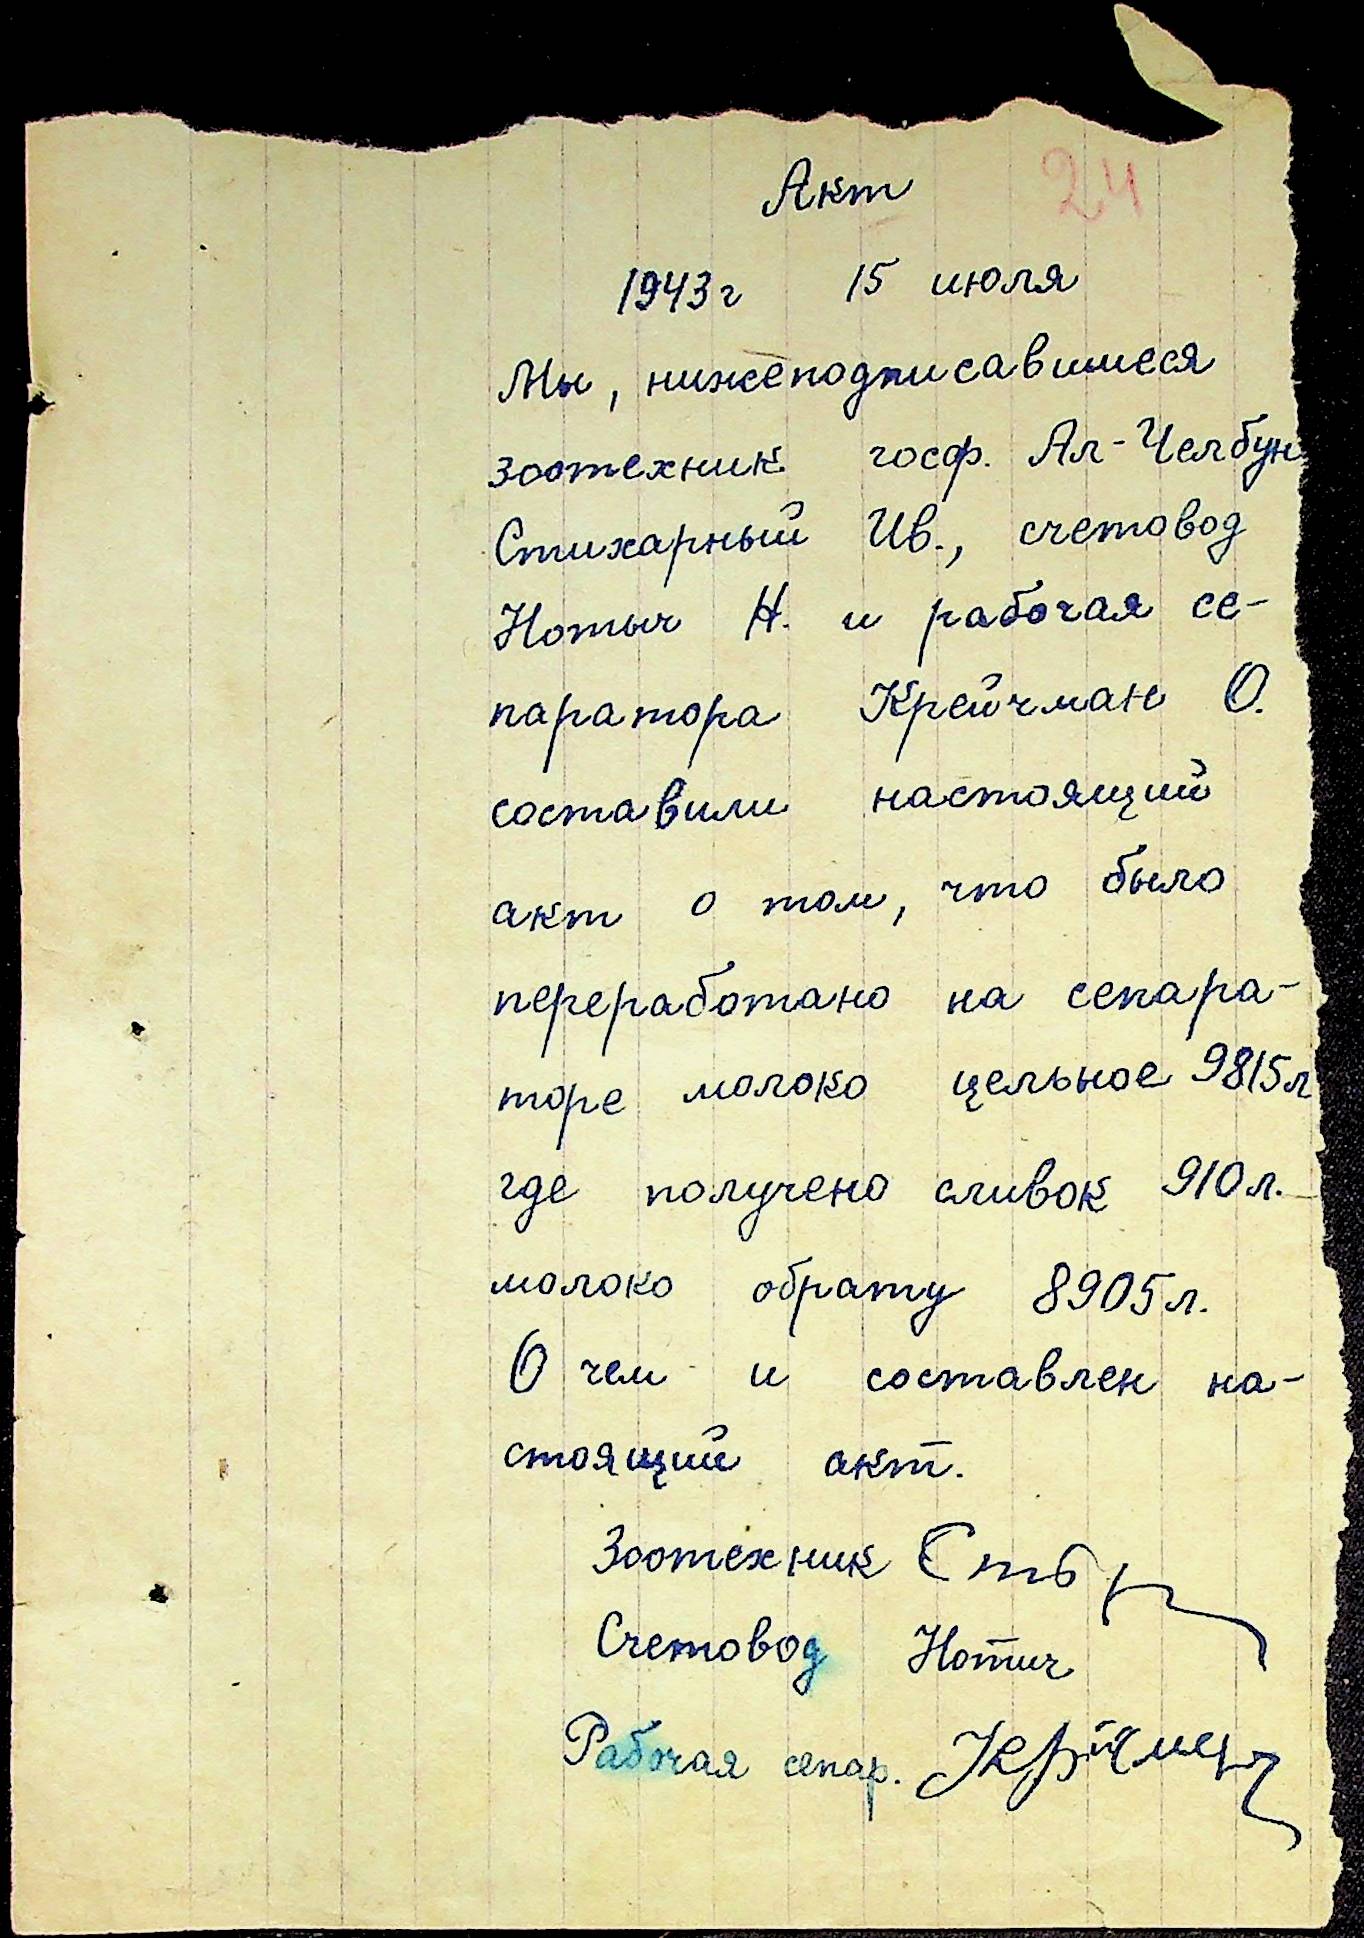 Акт 24
1943г 15 июля
Мы, нижеподписавшиеся
зоотехник госф. Ал-Челбун
Стихарный Ив., счетовод
Нотыч Н. и рабочая се-
паратора Крейчман О.
составили настоящий
акт о том, что было
переработано на сепара-
торе молоко цельное 9815л
где получено сливок 910л.
молоко обрату 8905л.
О чем и составлен на-
стоящий акт.
Зоотехник
Счетовод Нотич
Рабочая сепар.